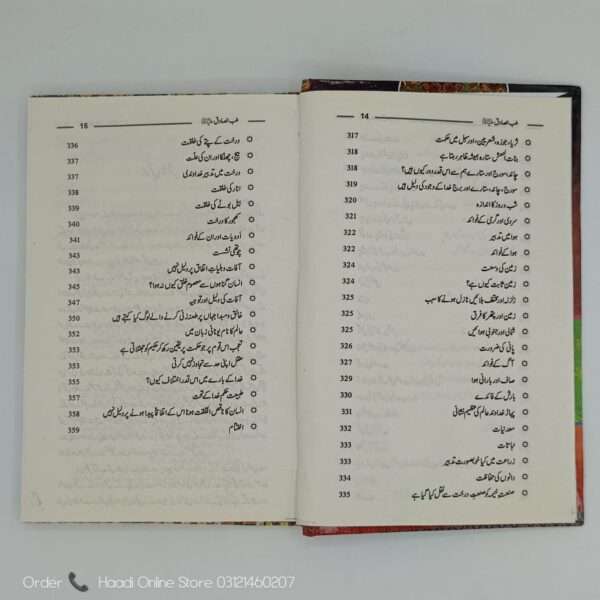 14 طب الصادق
317 ثریا، جوزہ، شعریین، اور سہیل میں حکمت
318 بنات النعش ستارہ ہمیشہ ظاہر رہتا ہے
318 چاند، سورج اور ستارے ہم سے اس قدر دور کیوں ہیں؟
319 سورج، چاند، ستارے اور برج خدا کے وجود کی دلیل ہیں
320 شب و روز کا اندازہ
321 سردی اور گرمی کے فوائد
322 ہوا میں تدبیر
322 ہوا کے فوائد
324 زمین کی وسعت
324 زمین ثابت کیوں ہے؟
325 زلزلہ اور مختلف بلائیں نازل ہونے کا سبب
325 زمین اور پتھر کا فرق
325 شمالی اور جنوبی ہوائیں
326 پانی کی ضرورت
327 آگ کے فوائد
329 صاف اور بارانی ہوا
330 بارش کے فائدے
331 پہاڑ خداوند عالم کی عظیم نشانی
332 معدنیات
333 نباتات
333 زراعت میں کیا خوبصورت تدبیر
334 دانوں کی حفاظت
335 صنعت خیمہ کو صنعت درخت سے نقل کیا گیا ہے
15 طب الصادق
336 درخت کے پتے کی خلقت
337 بیج، چھلکا اور ان کی علت
337 درخت میں تدبیر خداوندی
338 انار کی خلقت
339 بیل بوٹے کی خلقت
340 کھجور کا درخت
341 ادویات اور ان کے فوائد
343 چوتھی نشست
343 آفات و بلیات اتفاق پر دلیل نہیں
345 انسان گناہوں سے معصوم خلق کیوں نہ ہوا؟
347 آفات کی دلیل اور توجیہ
350 خالق و مبدا جہاں پر طعنہ زنی کرنے والے لوگ کیا کہتے ہیں
352 عالم کا نام یونانی زبان میں
353 تعجب اس قوم پر جو حکمت پر یقین رکھ کر حکیم کو جھٹلاتی ہے
353 عقل اپنی حد سے تجاوز نہیں کرتی
355 خدا کے بارے میں اس قدر اختلاف کیوں؟
357 طبیعت حکم خدا کے تحت
358 انسان کا ناقص الخلقت ہونا اس کے اتفاقاً پیدا ہونے پر دلیل نہیں
359 اختتام
Order Haadi Online Store 03121460207